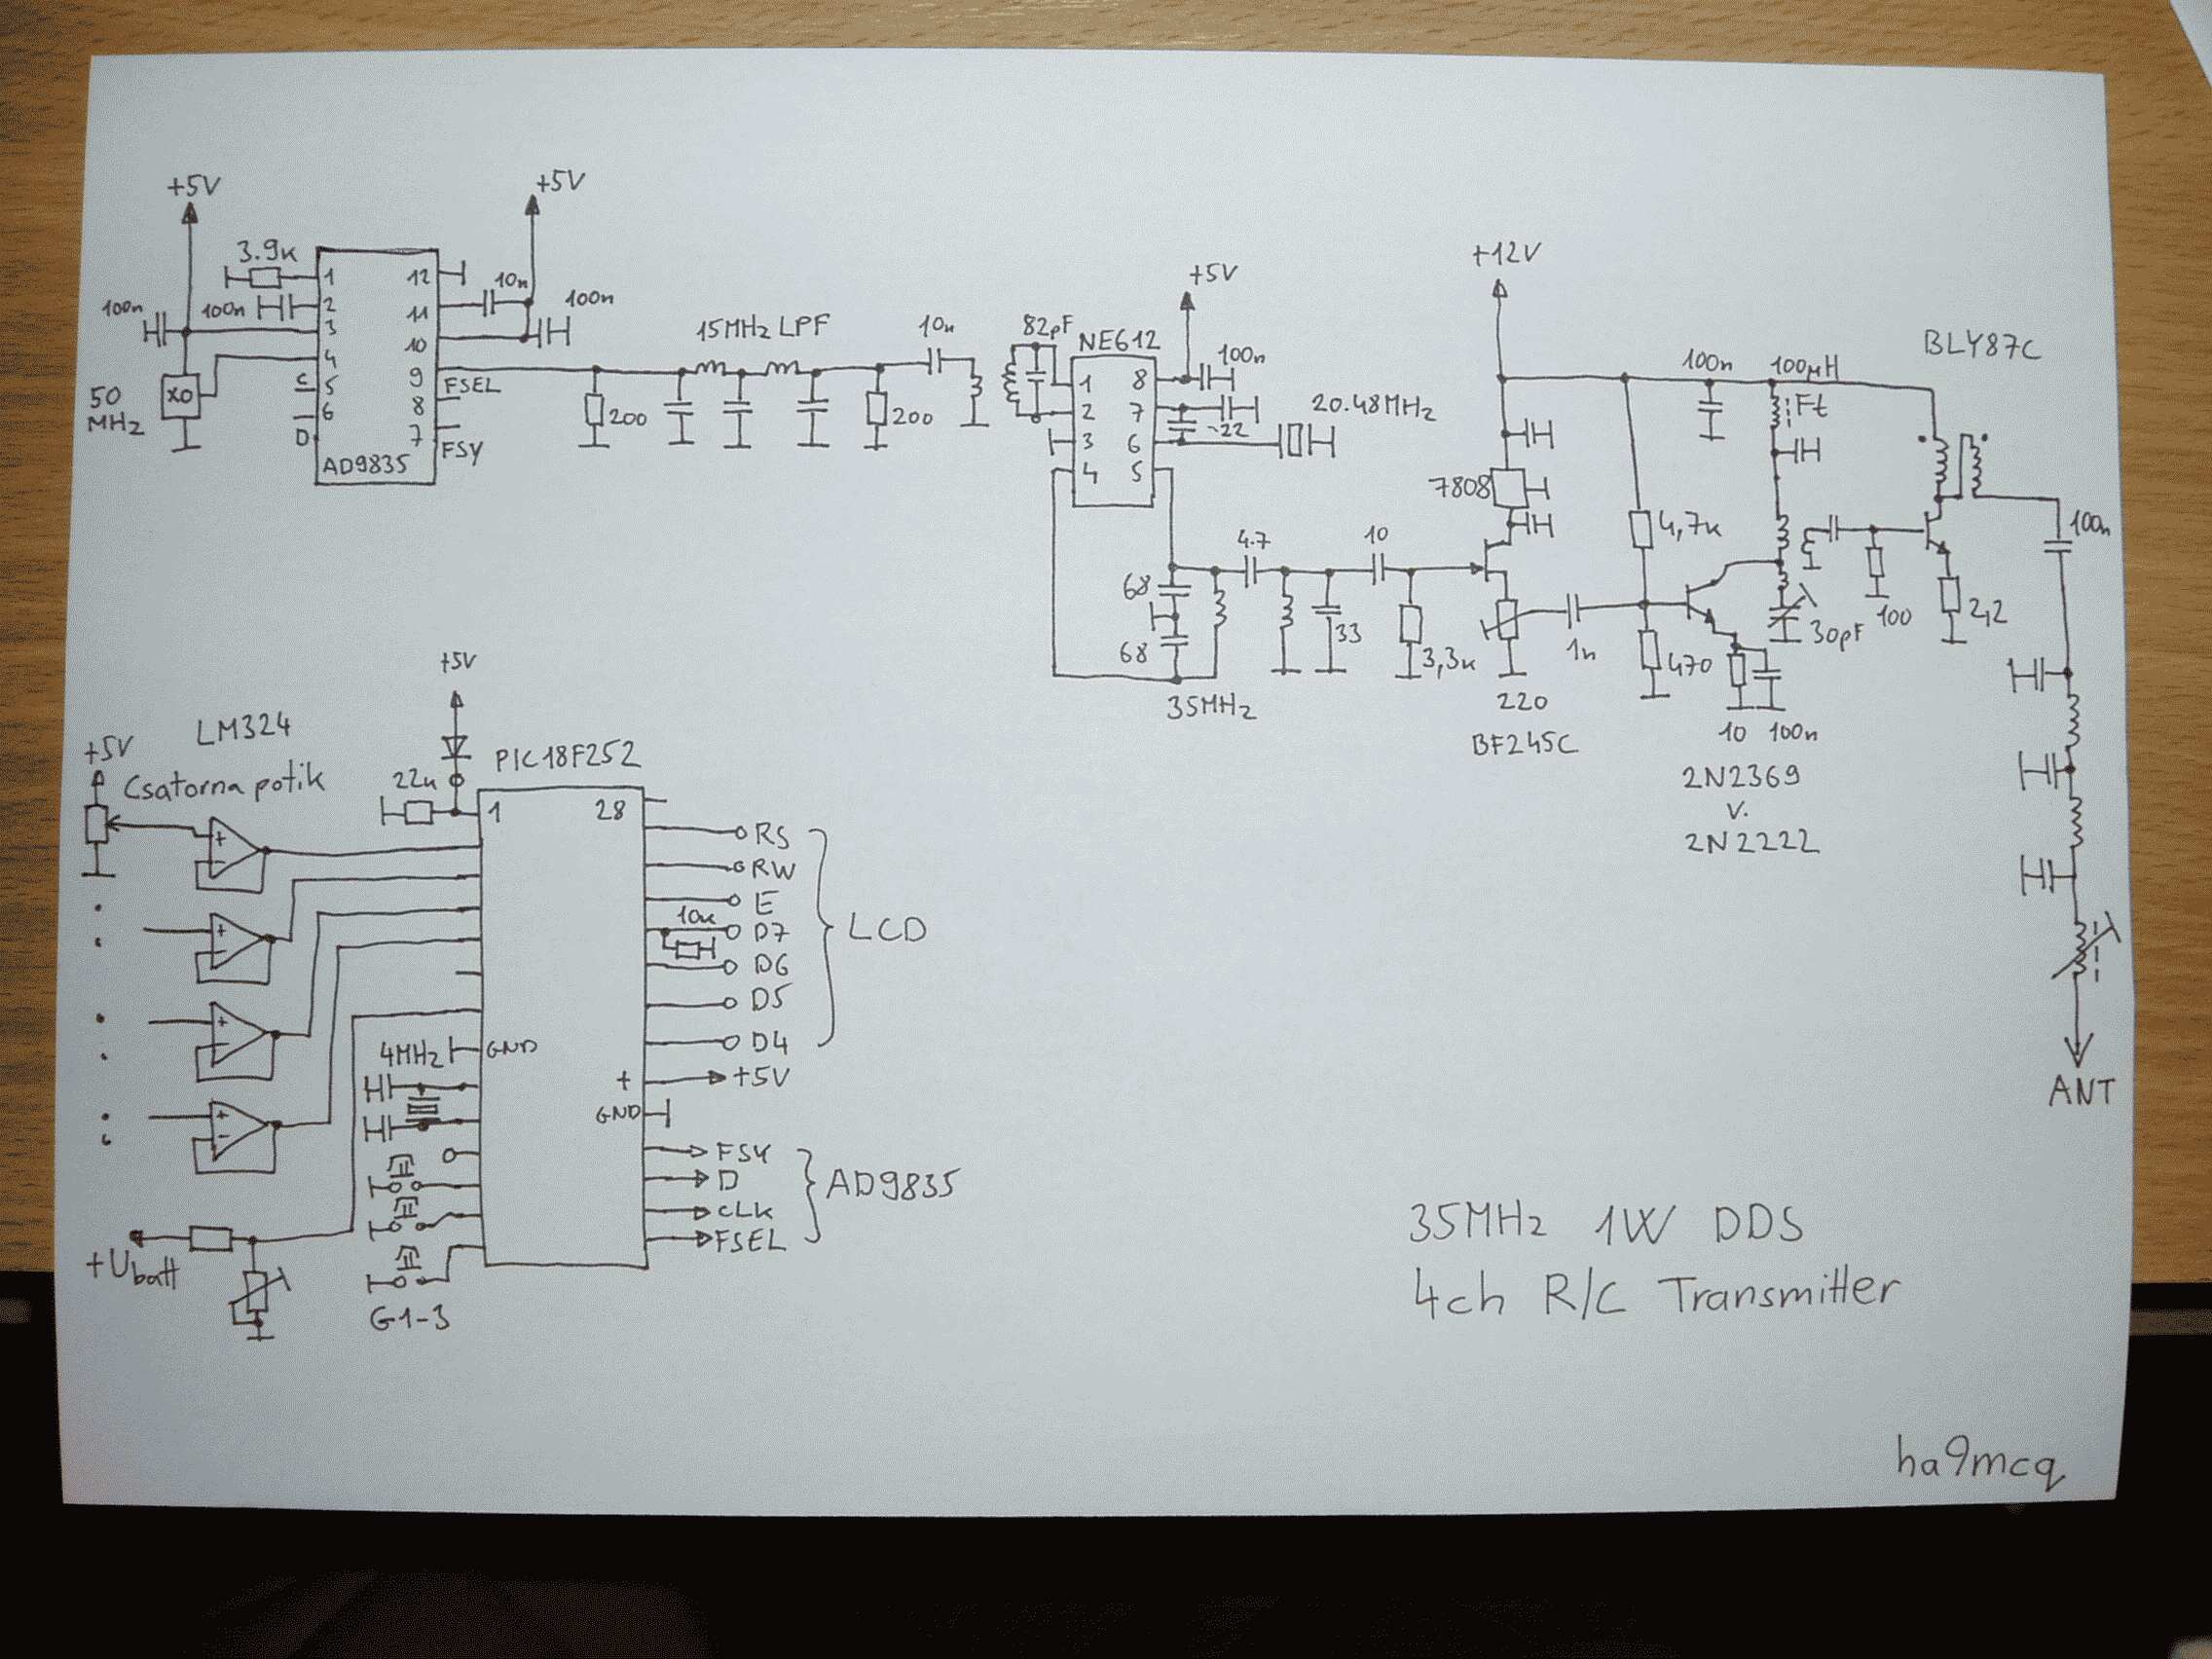 +5V
3.9k
100n
100n
50
MHz
XO
1
2
3
4
5
6
C
D
12
11
10
9
8
7
FSEL
FSY
AD9835
+5V
10n
100n
200
15MHz LPF
200
10n
82pF
NE612
1
2
3
4
8
7
6
5
+5V
100n
~22
20.48MHz
68
68
35MHz
4.7
33
10
3,3k
+12V
7808
220
BF245C
1n
4,7k
470
10
100n
2N2369
v.
2N2222
100n
100µH
Ft
30pF
100
BLY87C
2,2
100n
ANT
LM324
+5V
Csatorna potik
+5V
22k
PIC18F252
1
28
RS
RW
E
10k
D7
D6
D5
D4
LCD
4MHz
GND
+
+5V
GND
FSY
D
CLK
FSEL
AD9835
+Ubatt
G1-3
35MHz 1W DDS
4ch R/C Transmitter
ha9mcq